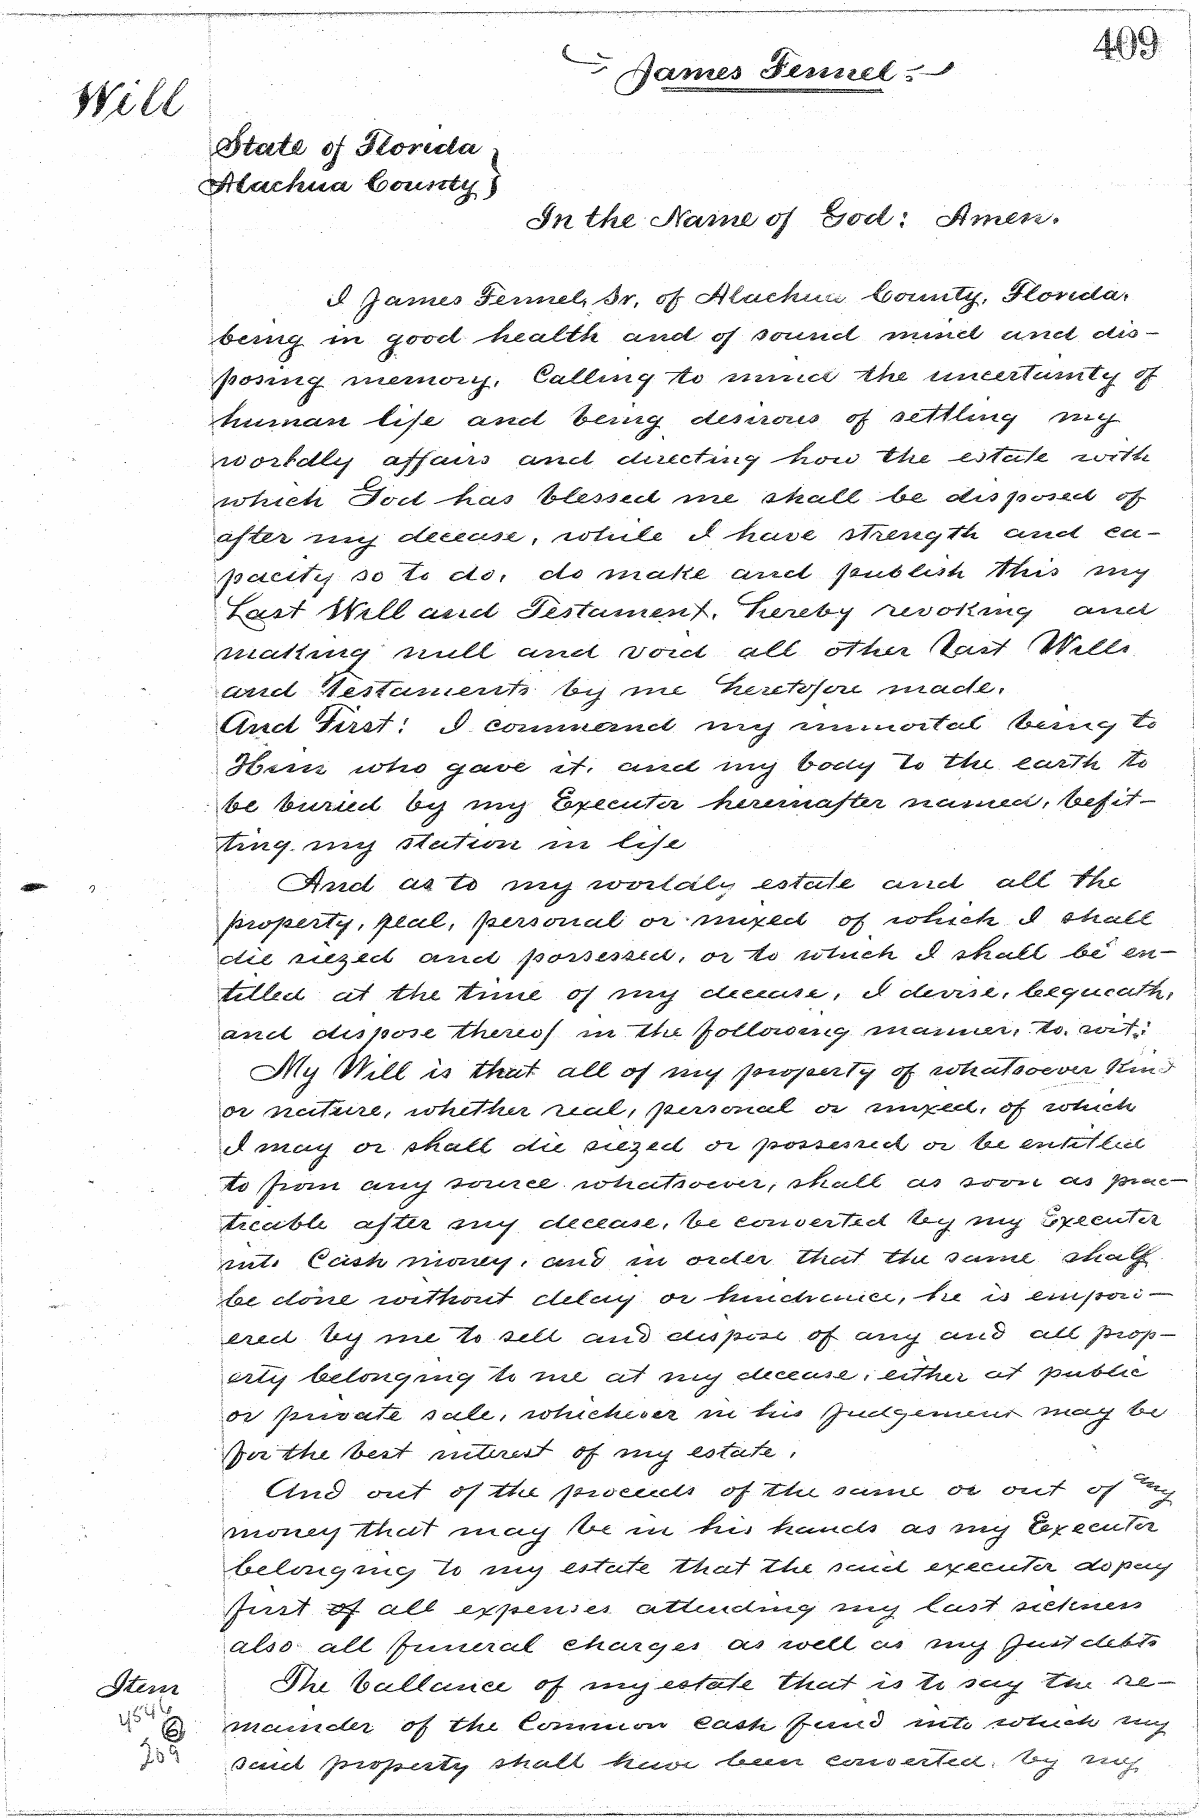 409
James Fennel.
Will
State of Florida
Alachua County
In the Name of God: Amen.
I James Fennel, Sr. of Alachua County, Florida,
being in good health and of sound mind and dis-
posing memory. Calling to mind the uncertainty of
human life and being desirous of settling my
worldly affairs and directing how the estate with
which God has blessed me shall be disposed of
after my decease, while I have strength and ca-
pacity so to do, do make and publish this my
Last Will and Testament, hereby revoking and
making null and void all other Last Wills
and Testaments by me heretofore made.
And First: I commend my immortal being to
Him who gave it, and my body to the earth to
be buried by my Executor hereinafter named, befit-
ting my station in life
And as to my worldly estate and all the
property, real, personal or mixed of which I shall
die siezed and possessed, or to which I shall be en-
titled at the time of my decease, I devise, bequeath,
and dispose thereof in the following manner, to. wit:
My Will is that all of my property of whatsoever Kind
or nature, whether real, personal or mixed, of which
I may or shall die siezed or possessed or be entitled
to from any source whatsoever, shall as soon as prac-
ticable after my decease, be converted by my Executor
into Cash money, and in order that the same shall
be done without delay or hindrance, he is empow-
ered by me to sell and dispose of any and all prop-
erty belonging to me at my decease, either at public
or private sale, whichever in his Judgement may be
for the best interest of my estate.
And out of the proceeds of the same or out of any
money that may be in his hands as my Executor
belonging to my estate that the said executor do pay
first of all expenses attending my last sickness
also all funeral charges as well as my Just debts
Item
The ballance of my estate that is to say the re-
4546
mainder of the Common cash fund into which my
6
209
said property shall have been converted by my